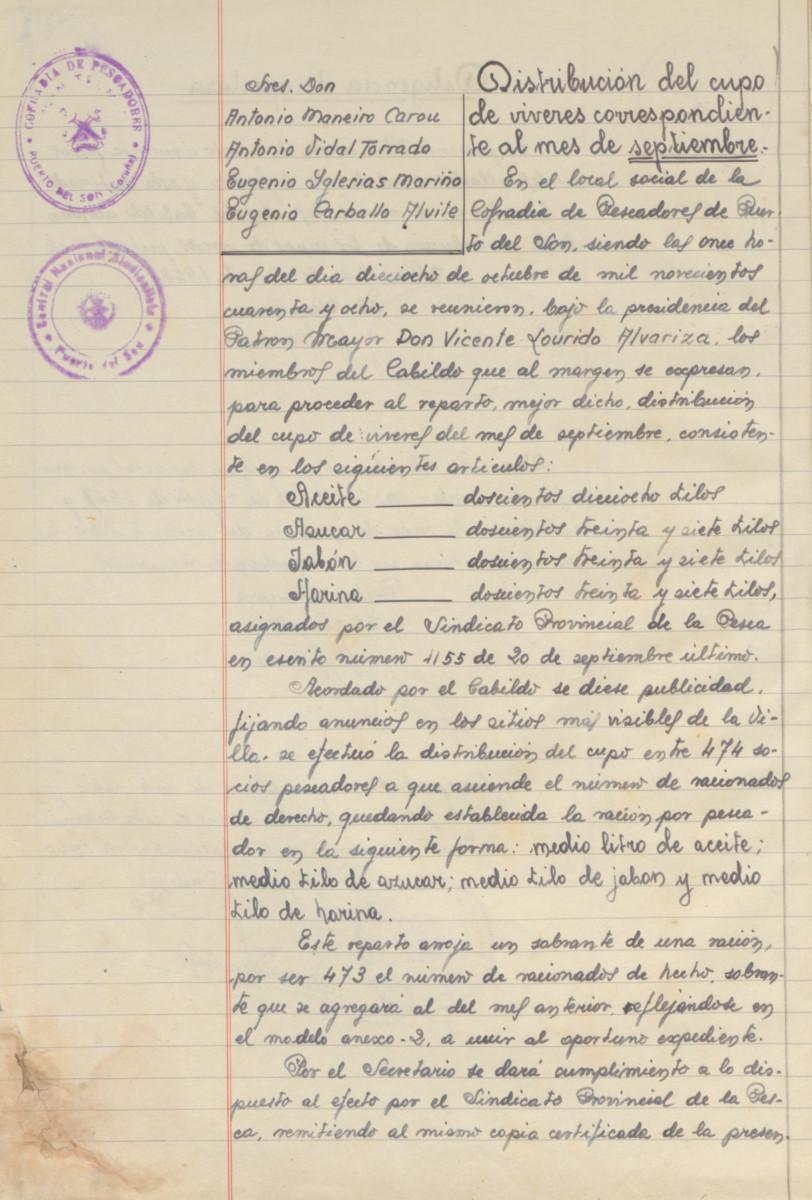 COFRADIA DE PESCADORES
PUERTO DEL SON (Coruña)
Central Nacional Sindicalista
Puerto del Son
Sres. Don
Antonio Maneiro Carou
Antonio Vidal Torrado
Eugenio Yglesias Mariño
Eugenio Carballo Alvite
Distribución del cupo
de viveres correspondien-
te al mes de septiembre.-
En el local social de la
Cofradia de Pescadores de Puer-
to del Son, siendo las once ho-
ras del dia dieciocho de octubre de mil novecientos
cuarenta y ocho, se reunieron, bajo la presidencia del
Patron Mayor Don Vicente Lourido Alvariza, los
miembros del Cabildo que al margen se expresan,
para proceder al reparto, mejor dicho, distribución
del cupo de viveres del mes de septiembre, consisten-
te en los siguientes articulos:
Aceite ______ doscientos dieciocho kilos
Azucar ______ doscientos treinta y siete kilos
Jabón ______ doscientos treinta y siete kilos
Harina ______ doscientos treinta y siete kilos,
asignados por el Sindicato Provincial de la Pesca
en escrito número 1155 de 20 de septiembre último.
Acordado por el Cabildo se diese publicidad,
fijando anuncios en los sitios más visibles de la Vi-
lla, se efectuó la distribución del cupo entre 474 so-
cios pescadores a que asciende el número de racionados
de derecho, quedando establecida la ración por pesca-
dor en la siguiente forma: medio litro de aceite;
medio kilo de azucar; medio kilo de jabon y medio
kilo de harina.
Este reparto arroja un sobrante de una ración,
por ser 473 el número de racionados de hecho, sobran-
te que se agregará al del mes anterior, reflejándose en
el modelo anexo-2, a unir al oportuno expediente.
Por el Secretario se dará cumplimiento a lo dis-
puesto al efecto por el Sindicato Provincial de la Pes-
ca, remitiendo al mismo copia certificada de la presen-